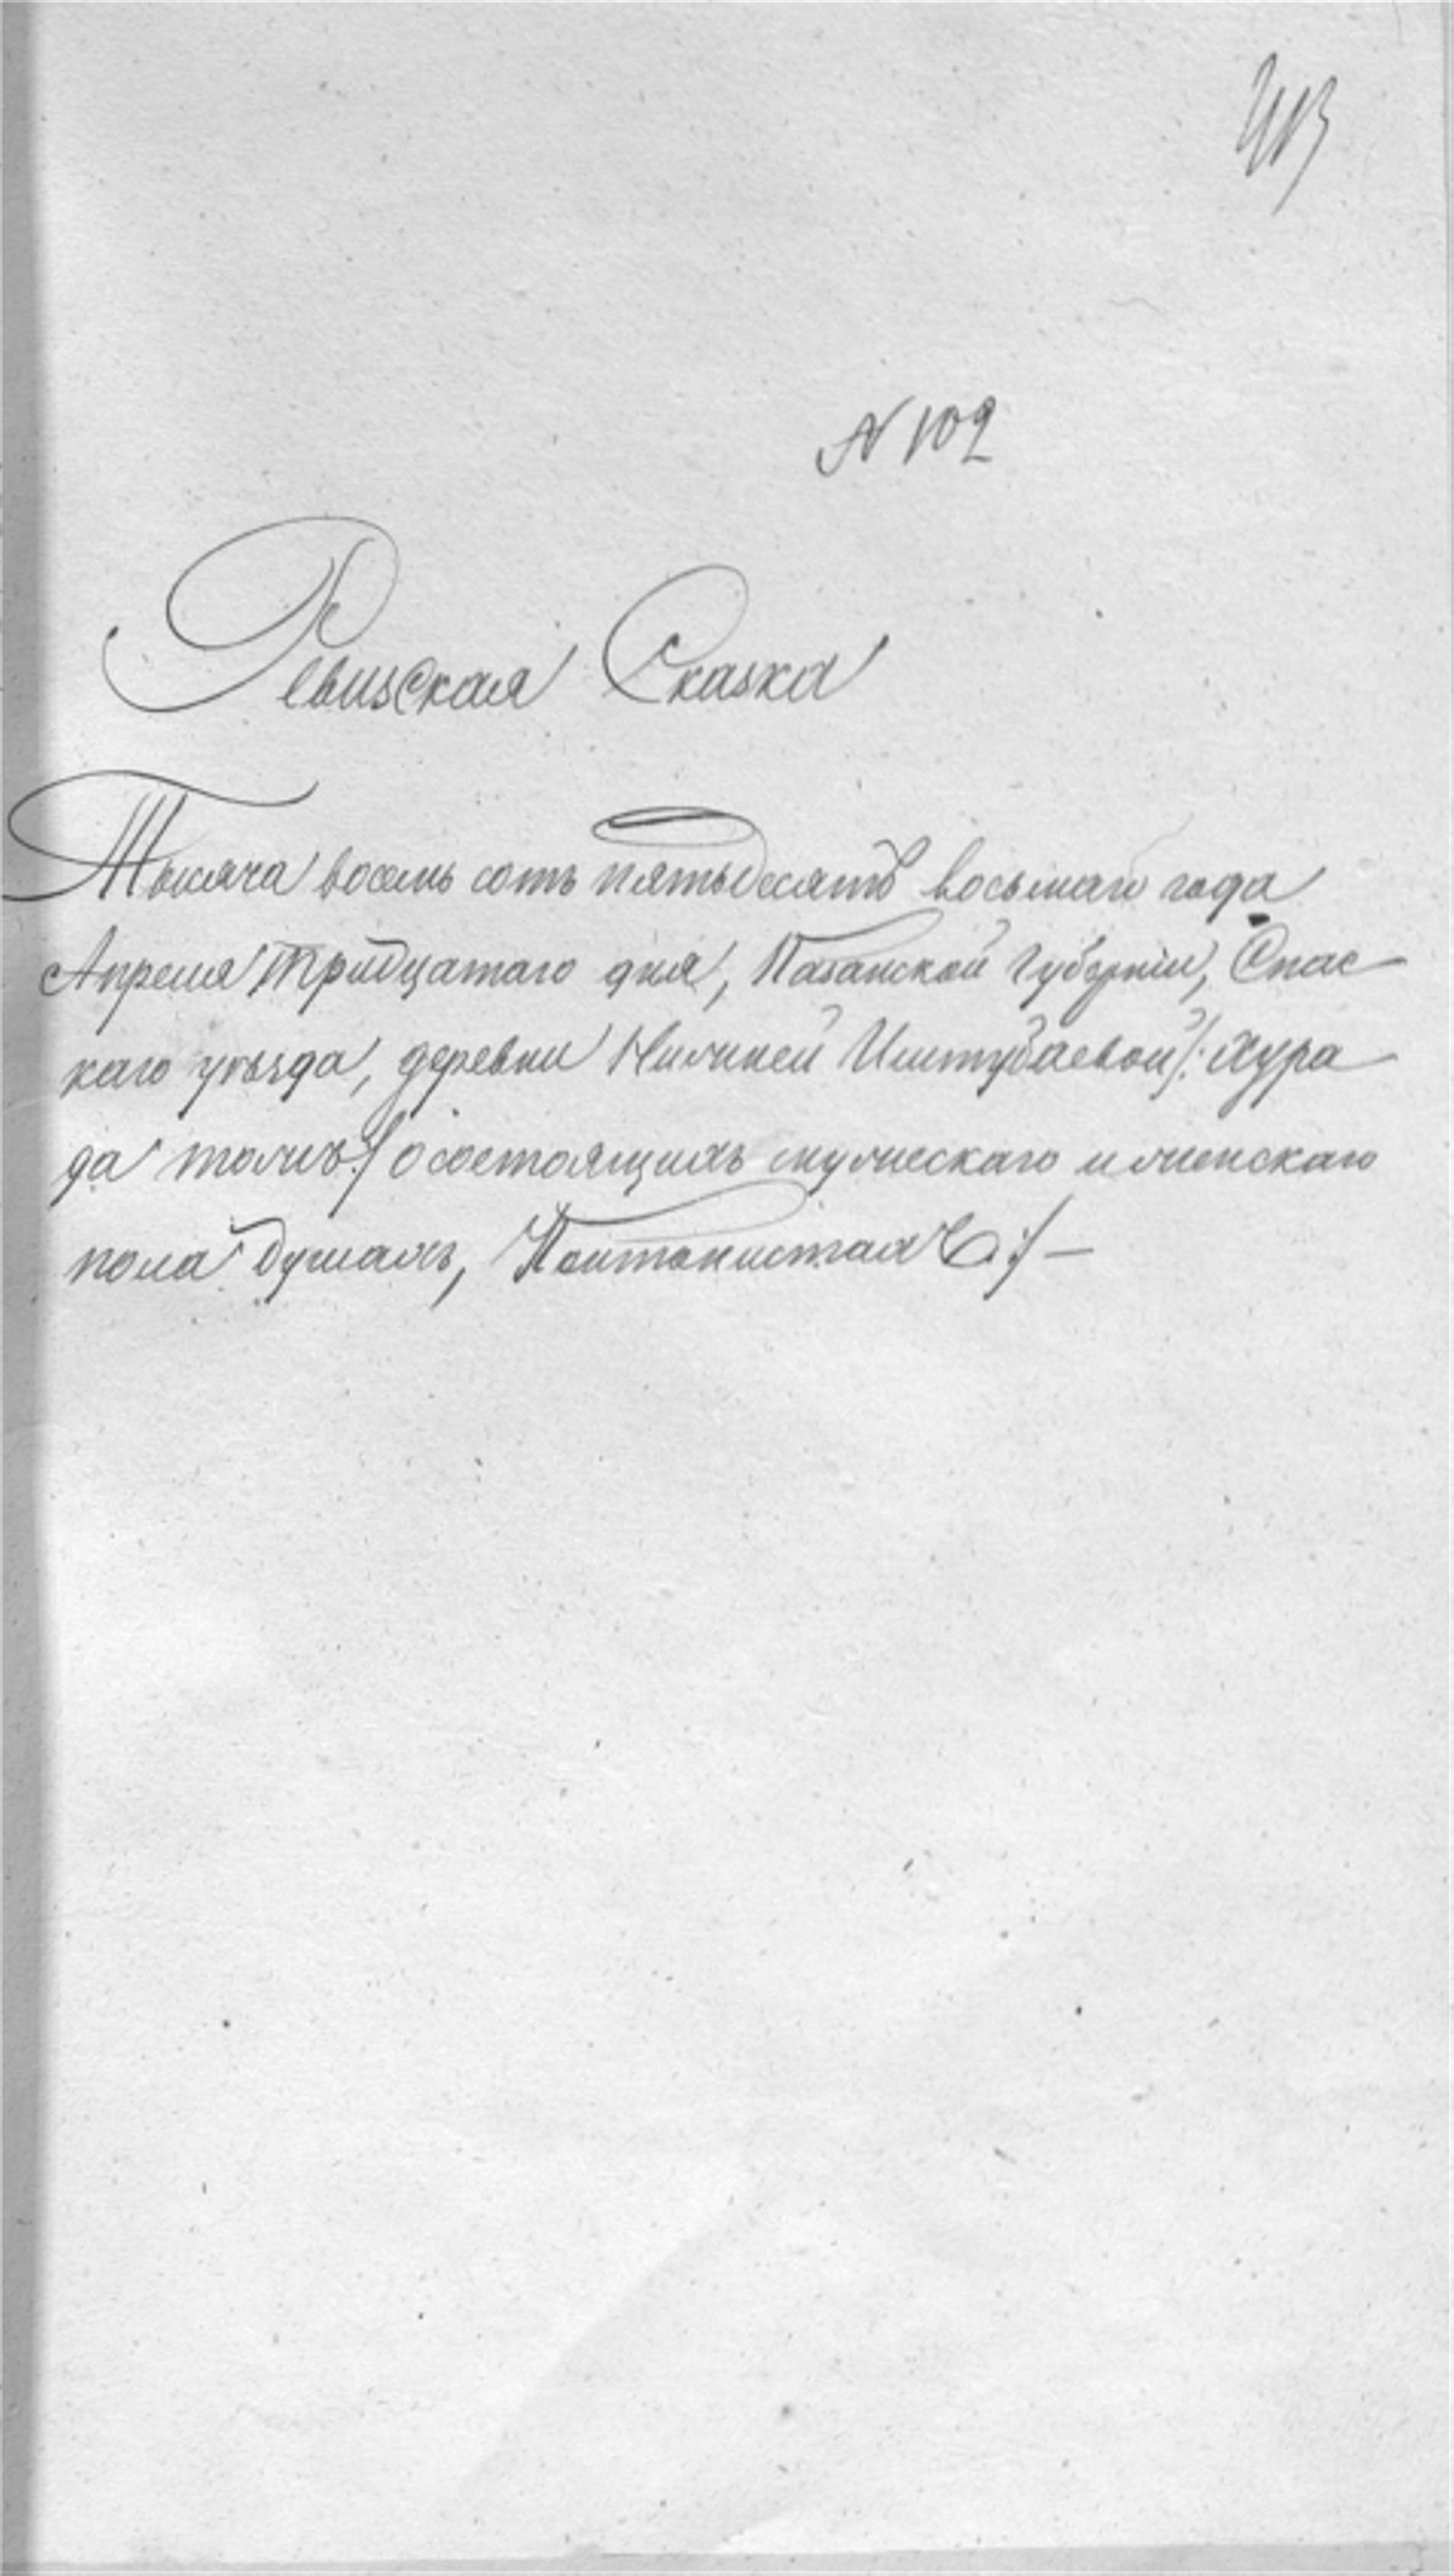 413
N 102
Ревизская Сказка
Тысяча восемь сотъ пятьдесятъ восьмаго года
Апреля тридцатаго дня, Казанской губерніи, Спас
каго уѣзда, деревни Нижней Иштубаевой /: Хура
да тожъ :/ о состоящихъ мужескаго и женскаго
пола душахъ,